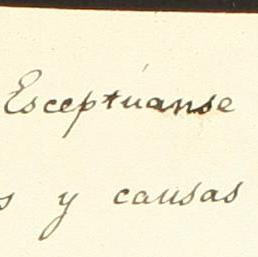 Esceptúanse
s y causas